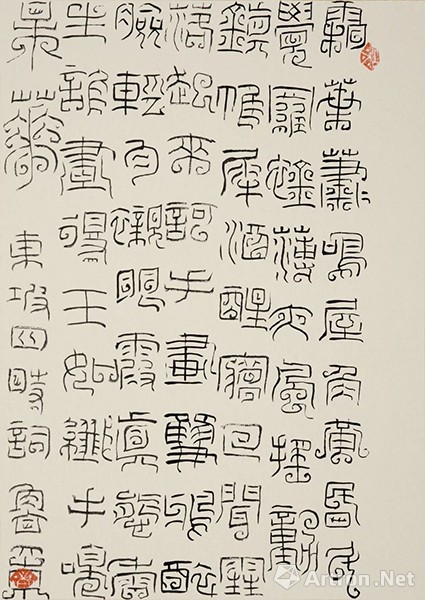 霜葉蕭〻鳴屋角黃昏斗
覺羅衾薄夜風搖動
鎮帷犀酒醒夢回聞雪
落起來訶手畫雙鴉醉
臉輕勻襯眼霞真態香
生誰畫得玉如纖手嗅
某華
東坡四時詞 魯
Artron.Net